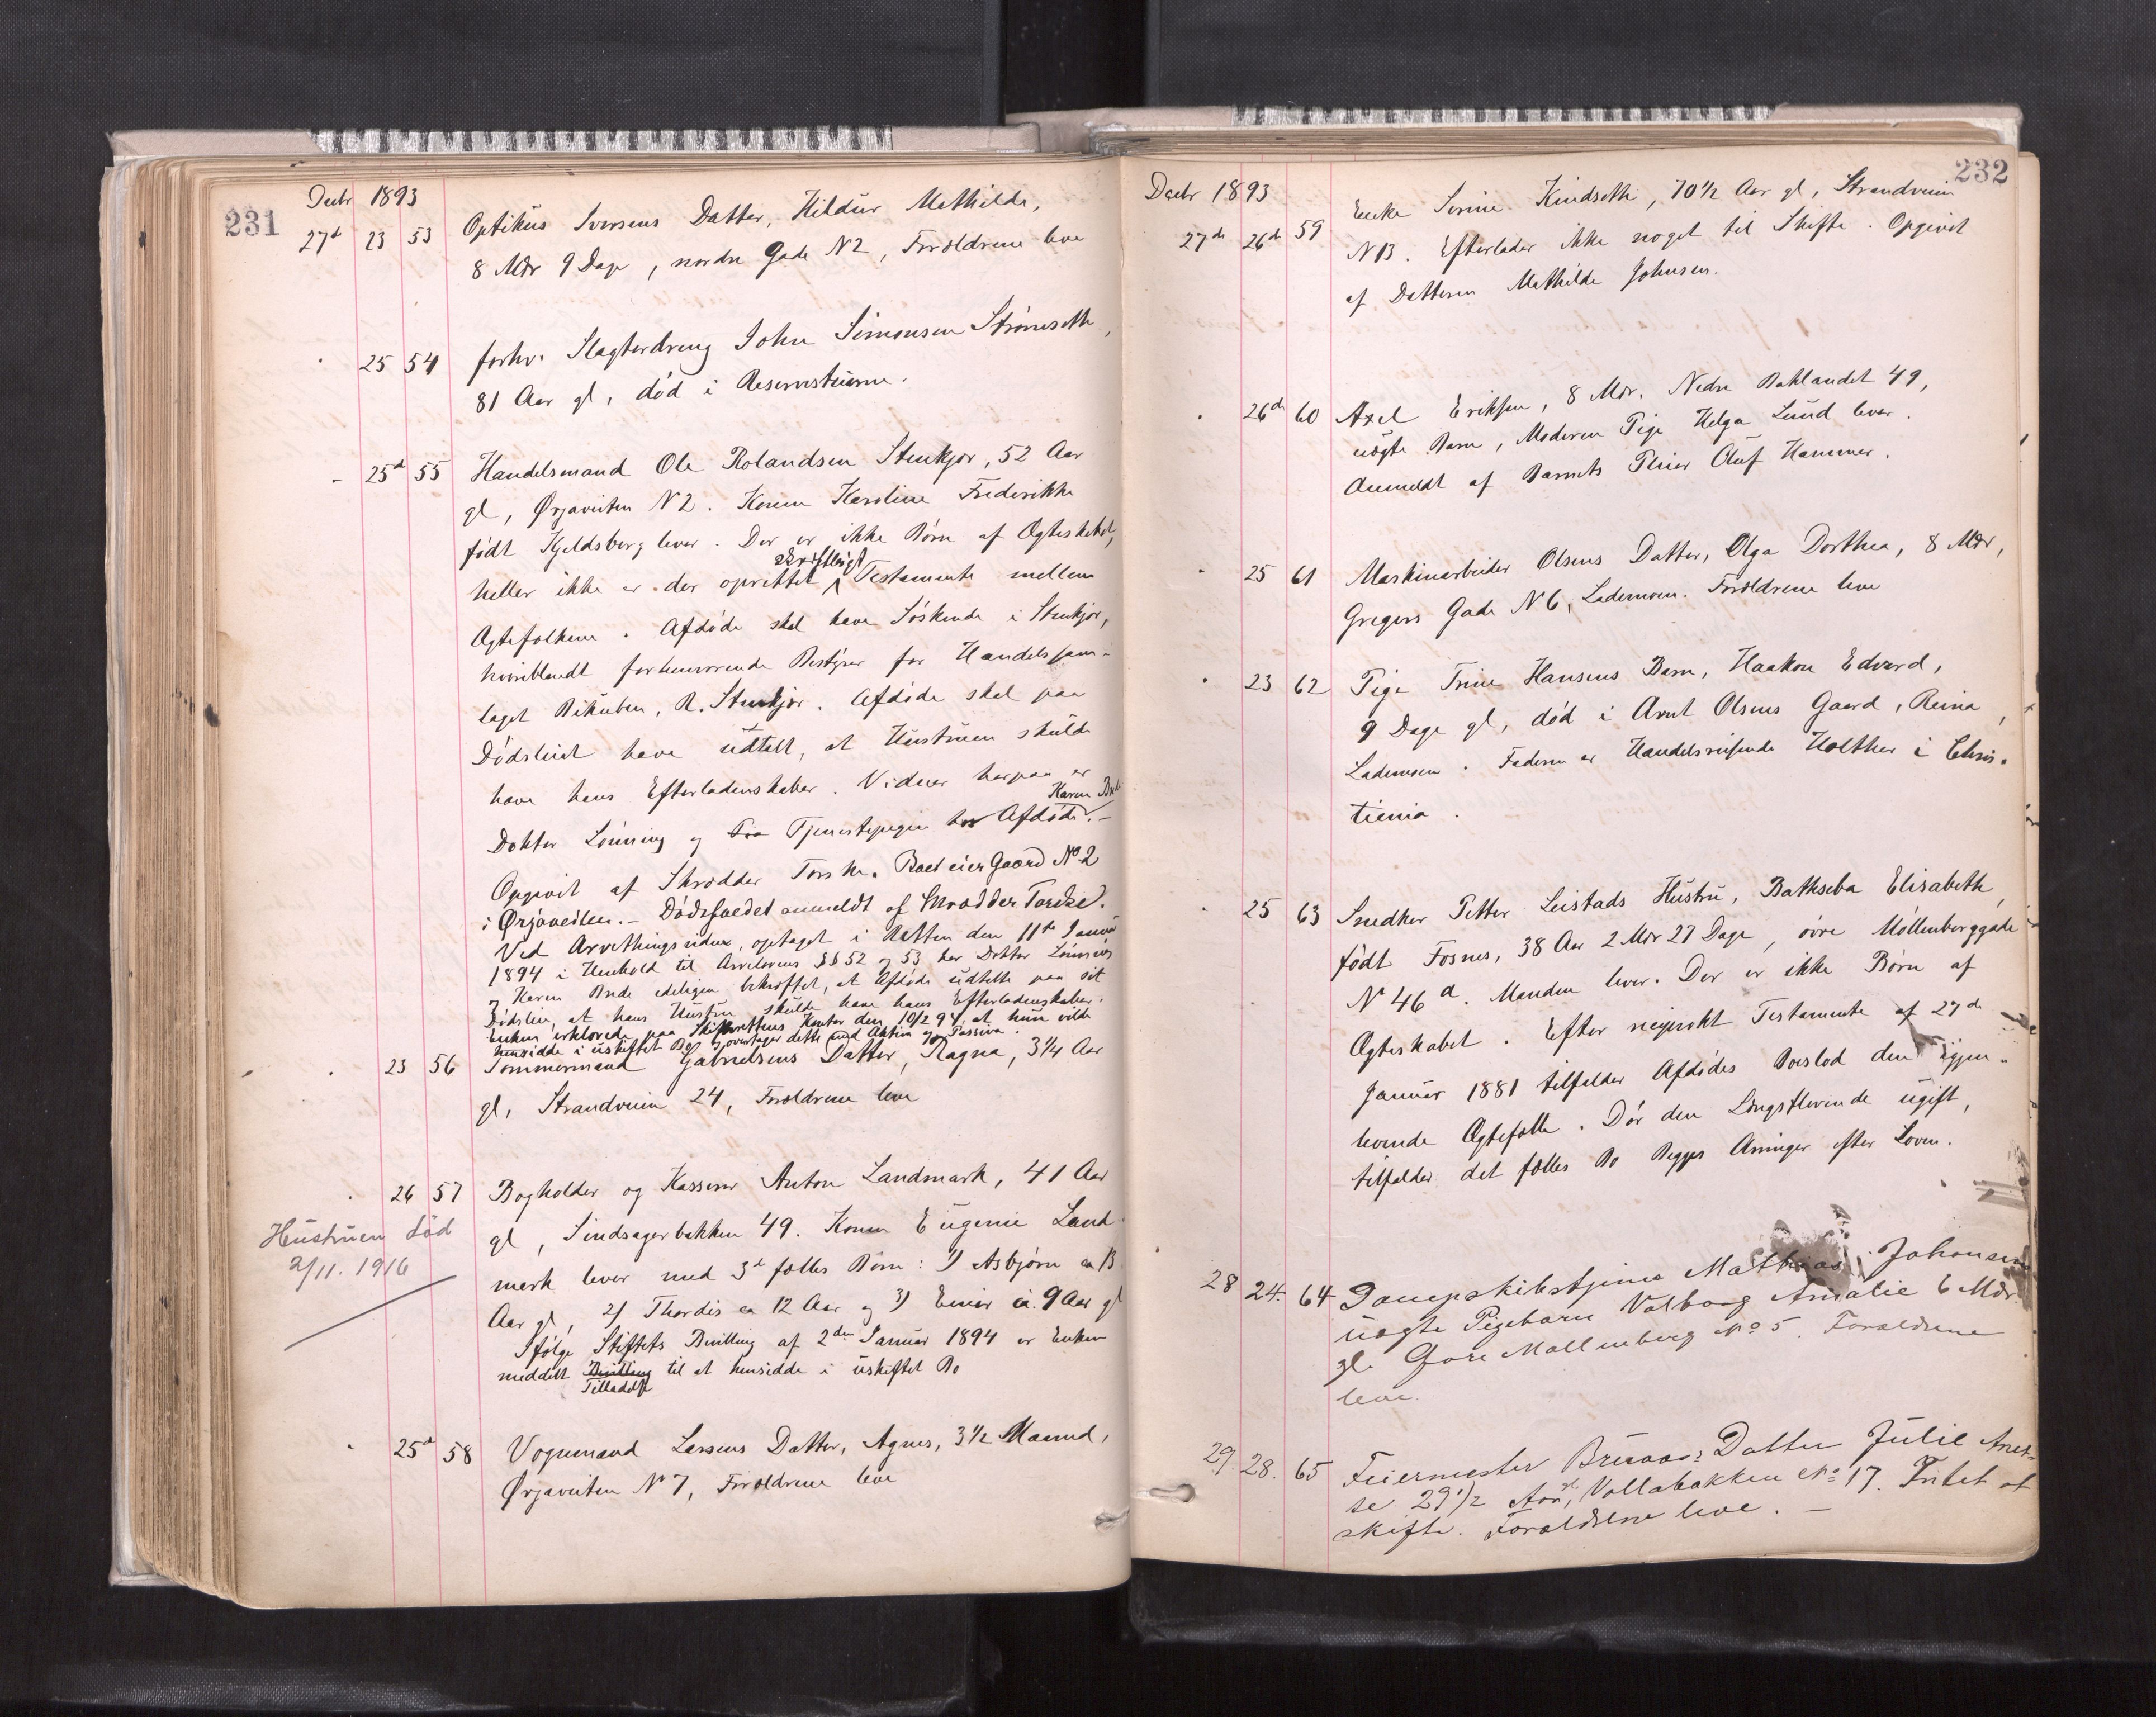 231
Decbr 1893
27d 23 53 Optikus Iversens Datter, Hildur Mathilde,
8 Mdr 9 Dage, nordre Gade N 2, Forældrene leve
" 25 54 forhv. Slagterdreng John Simonsen Strømseth,
81 Aar gl, død i Reservestuerne.
- 25d 55 Handelsmand Ole Rolandsen Stenkjær, 52 Aar
gl, Ørjaveiten N 2. Konen Karoline Frederikke
født Kjeldsberg lever. Der er ikke Børn af Ægteskabet,
skriftligt
heller ikke er der oprettet Testamente mellem
Ægtefolkene. Afdøde skal have Søskende i Stenkjær,
hvoriblandt forhenværende Bestyrer for Handelssam-
laget Bikuben, R. Stenkjær. Afdøde skal paa
Dødsleiet have udtalt, at Hustruen skulde
have hans Efterladenskaber. Vidner herpaa er
Karen
Doktor Lønning og Tjenestepigen hos Afdøde. -
Opgivit af Skrædder Torske. Boet eier Gaard No 2
i Ørjaveiten. - Dødsfaldet anmeldt af Skrædder Torske.
Ved Arvethingsvidne, optaget i Retten den 11te Januar
1894 i Henhold til Arvelovens §§ 52 og 53 har Doktor Lønning
og Karen Brede edeligen bekræftet, at Afdøde udtalte paa sit
Dødsleie, at hans Hustru skulde have hans Efterladenskaber.
Enken erklærede paa Skifterettens Kontor den 10/2 94, at hun vilde
hensidde i uskiftet Bo og overtager dette med Aktiva og Passiva.
" 23 56 Tømmermand Gabrielsens Datter, Ragna, 3 1/4 Aar
gl, Strandveien 24, Forældrene leve
" 26 57 Bogholder og Kasserer Anton Landmark, 41 Aar
gl, Sindsagerbakken 49. Konen Eugenie Land-
mark lever med 3d fælles Børn: 1) Asbjørn ca 13
Aar gl, 2) Thordis ca 12 Aar og 3) Einar ca. 9 Aar gl
Ifølge Stiftets Bevilling af 2den Januar 1894 er Enken
meddelt Bevilling til at hensidde i uskiftet Bo
Tilladelse
Hustruen død
2/11. 1916
" 25d 58 Vognmand Larsens Datter, Agnes, 3 1/2 Maaned,
Ørjaveiten N 7, Forældrene leve
232
Decbr 1893
27de 26de 59 Enke Serine Kindseth, 70 1/2 Aar gl, Strandveien
N 13. Efterlader ikke noget til Skifte. Opgivit
af Datteren Mathilde Johnsen.
" 26d 60 Axel Eriksen, 8 Mdr. Nedre Baklandet 49,
uægte Barn, Moderen Pige Helga Lund lever.
Anmeldt af Barnets Pleier Oluf Hammer.
" 25 61 Maskinarbeider Olsens Datter, Olga Dorthea, 8 Mdr,
Gregers Gade N 6, Lademoen. Forældrene leve
" 23 62 Pige Trine Hansens Barn, Haakon Edvard,
9 Dage gl, død i Arnt Olsens Gaard, Reina,
Lademoen. Faderen er Handelsreisende Holther i Chris-
tiania.
" 25 63 Snedker Petter Leistads Hustru, Bathseba Elisabeth,
født Fosnes, 38 Aar 2 Mdr 27 Dage, øvre Møllenberggade
N 46 a. Manden lever. Der er ikke Børn af
Ægteskabet. Efter Testamente af 27de
Januar 1881 tilfalder Afdødes Boeslod den igjen-
levende Ægtefælle. Dør den Længstlevende ugift,
tilfalder det fælles Bo Begges Arvinger efter Loven.
28 24. 64 Dampskibstjener Mathias Johansens
uægte Pigebarn Valborg Amalie 6 Mdr.
gl. Øvre Møllenberg No 5. Forældrene
leve.
29. 28. 65 Feiermester Bruaas: Datter Julie Anet-
te 29 1/2 Aar gl, Vollabakken No 17. Intet at
skifte. Forældrene leve. -